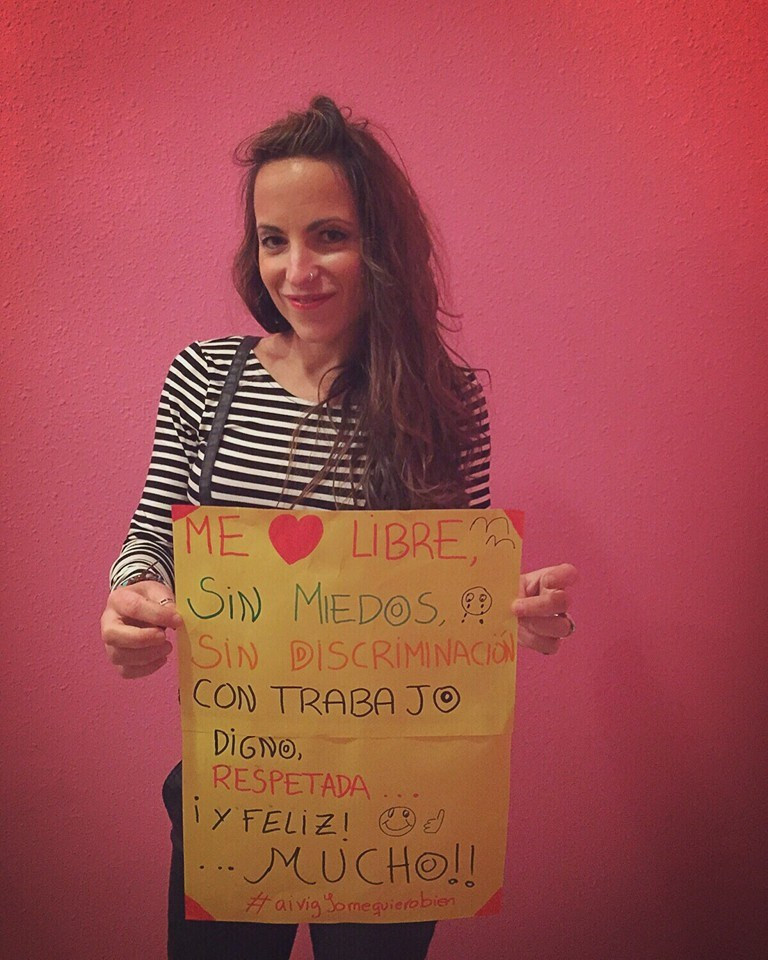 ME ❤ LIBRE,
SIN MIEDOS,
SIN DISCRIMINACIÓN
CON TRABAJO
DIGNO,
RESPETADA...
¡Y FELIZ!
...MUCHO!!
#aivigYomequierobien